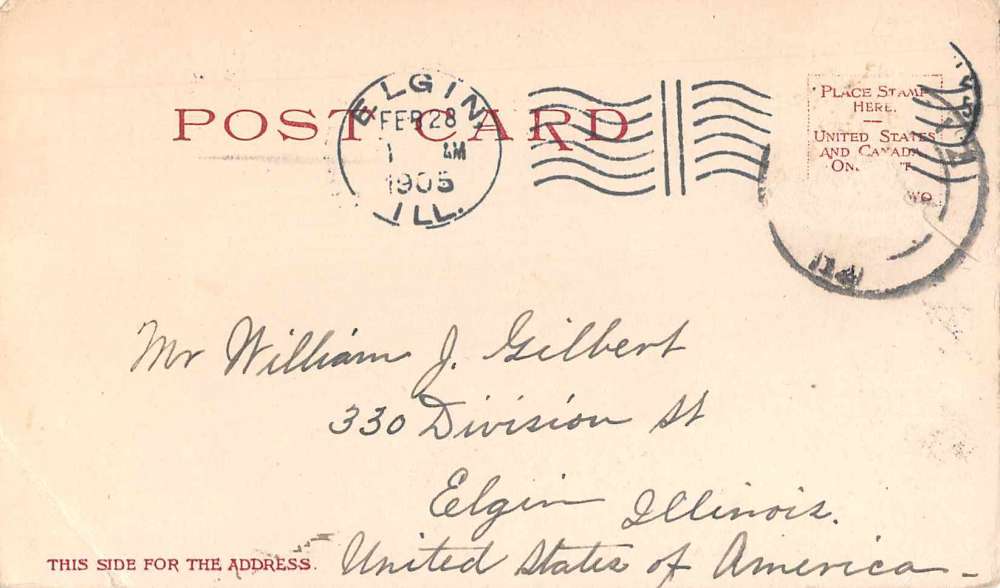 POST CARD
ELGIN,
FEB 28
1 AM
1905
ILL.
PLACE STAMP
HERE.
UNITED STATES
AND CANADA
Mr William J. Gilbert
330 Division St
Elgin Illinois.
THIS SIDE FOR THE ADDRESS.
United States of America